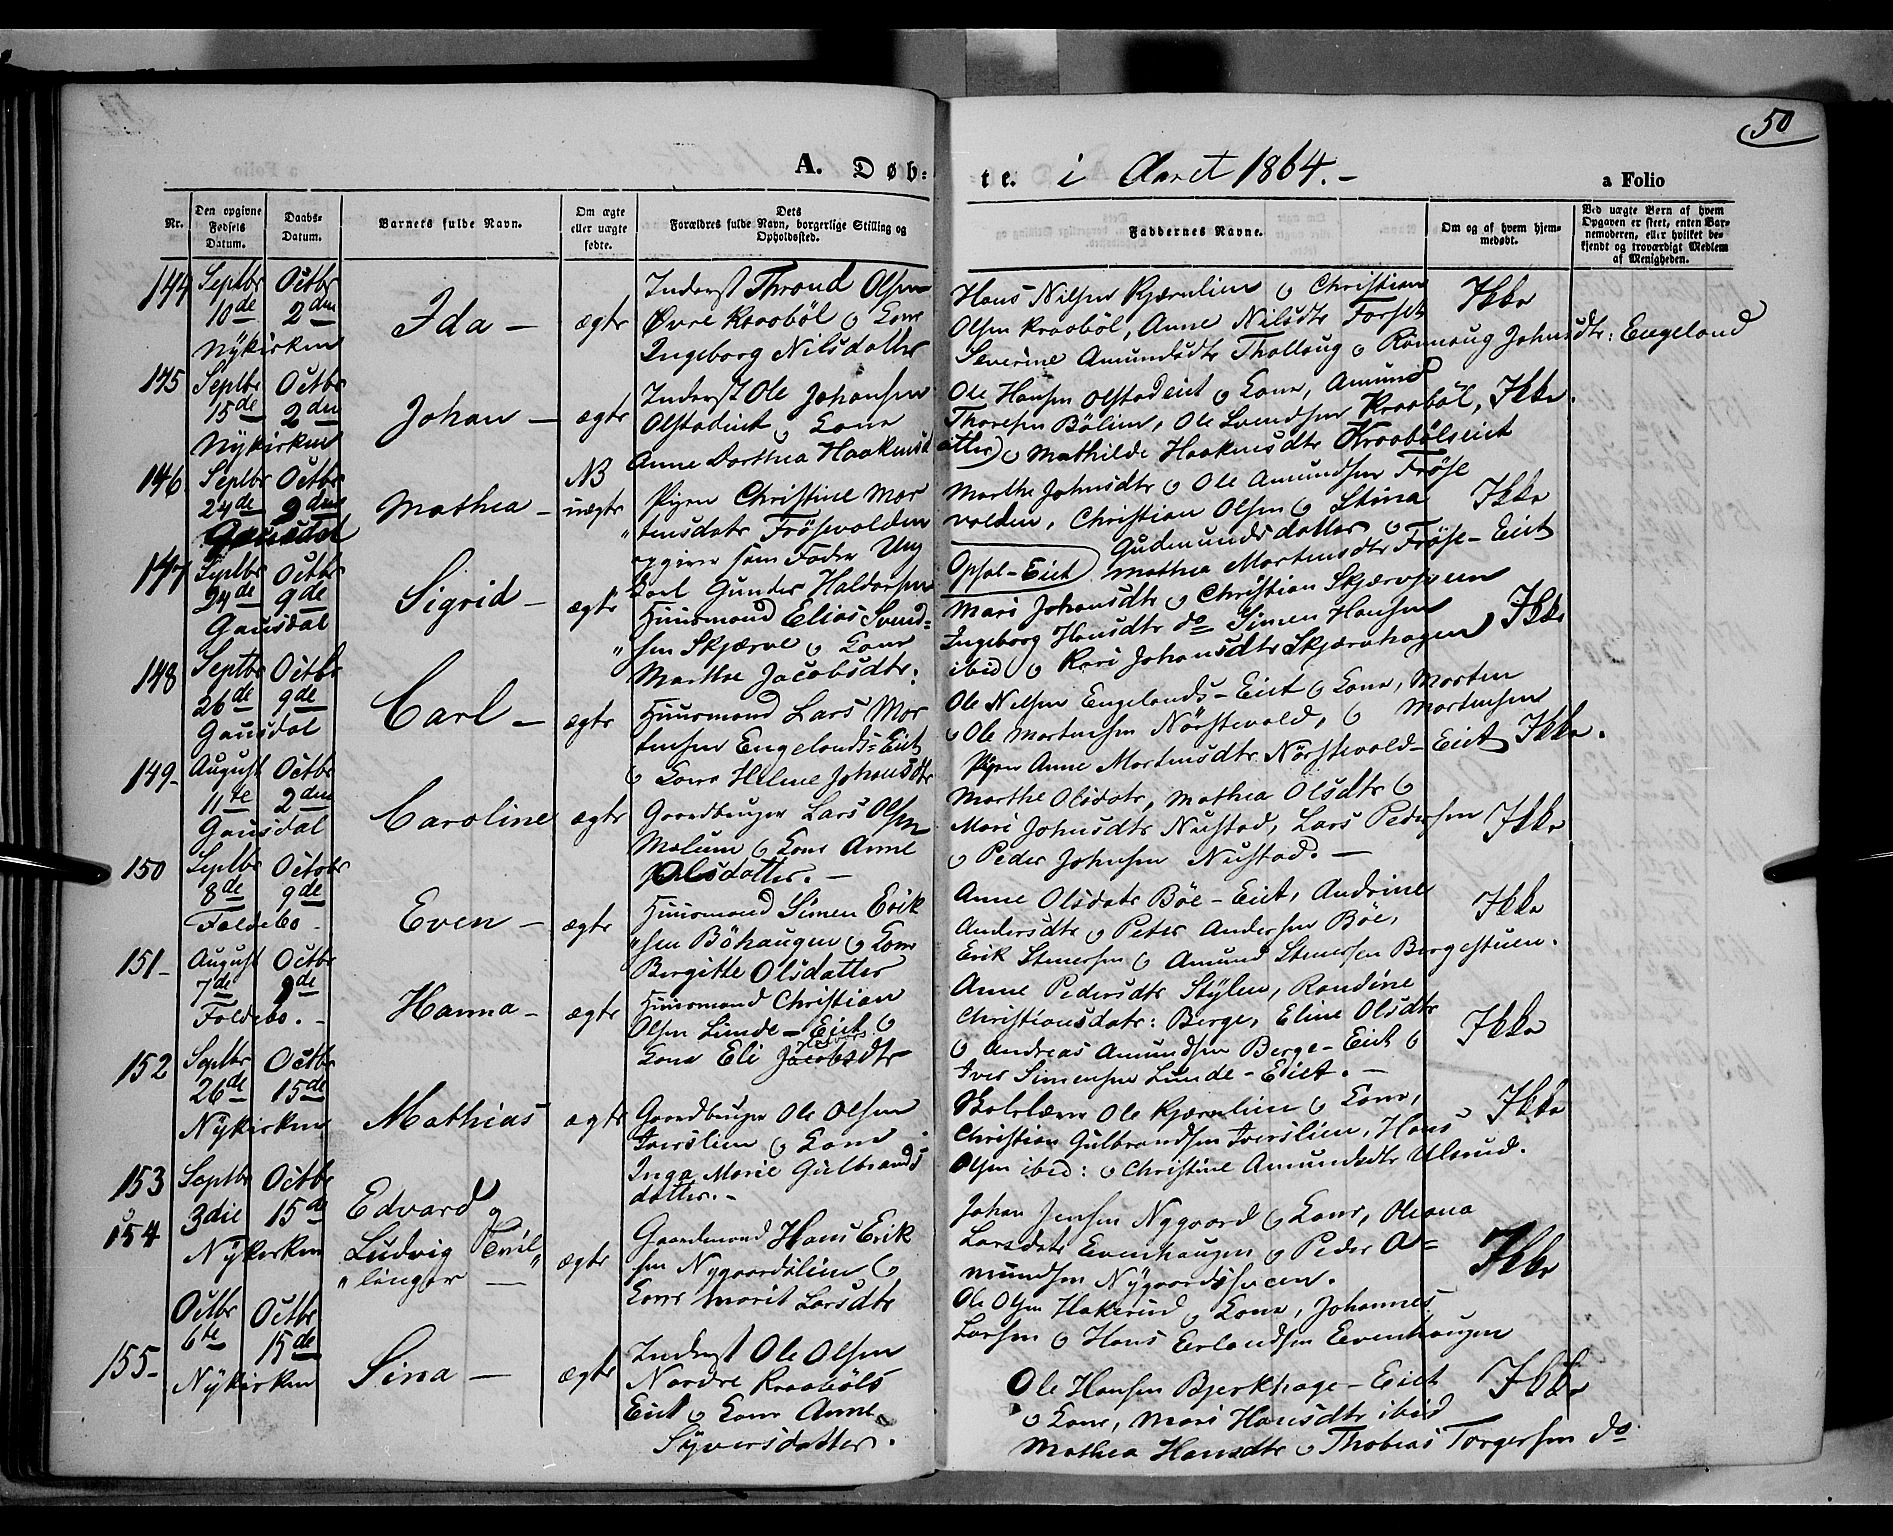 50
A. Døb:
te. i Aaret 1864. –
a Folio
Nr.
Den opgivne Fødsels Datum.
Daabs-Datum.
Barnets fulde Navn.
Om ægte eller uægte fødte.
Dets Forældres fulde Navn, borgerlige Stilling og Opholdssted.
Faddernes Navne.
Om og af hvem hjemmedøbt.
Ved uægte Børn af hvem Opgaven er skeet, enten Barnemoderen, eller hvilket bekjendt og troværdigt Medlem af Menigheden.
144 Septbr 10de Octbr 2den Nykirken
Ida –
ægte
Inderst Thrond Olsen
Øvre Kraabøl o Kone
Ingeborg Nilsdatter
Hans Nilsen Kjærnlien o Christian
Olsen Kraabøl, Anne Nilsdtr Forset
Severine Amundsdtr Thallaug o Rønnaug Johnsdtr: Engeland
Ikke
145 Septbr 15de Octbr 2den Nykirken
Johan –
ægte
Inderst Ole Johansen
Olstadeiet o Kone
Anne Dorthea Haakensd
Ole Hansen Olstadeiet o Kone, Amund
Thoresen Bölien, Ole Svendsen Kraaböl,
atter) o Mathilde Haakensdtr Kraabölseiet
Ikke.
146. Septbr 24de Octbr 9de Gausdal
Mathea –
NB
uægte
Pigen Christine Mor
" tensdatr Frösevolden
opgiver som Fader Ung
karl Gunder Haldorsen
Marthe Johnsdtr o Ole Amundsen Fröse
volden, Christian Olsen o Stina
Gudmundsdatter o
Opsal-Eiet) Mathea Mortensdtr Fröse-Eiet
Ikke
147 Septbr 24de Octbr 9de Gausdal
Sigrid –
ægte
Huusmand Elias Svend=
" sen Skjærve o Kone
Marthe Jacobsdtr:
Mari Johansdtr o Christian Skjærveggen
Ingeborg Hansdtr do Simen Hansen
ibid o Kari Johansdtr Skjærvehagen
Ikke
148 Septbr 26de Octbr 9de Gausdal
Carl –
ægte
Huusmand Lars Mor
tensen Engelands=Eiet
o Kone Helene Johansdtr
Ole Nilsen Engelands-Eiet o Kone, Morten
o Ole Mortensen Nörstevold, o Mortensen
Pigen Anne Mortensdtr Nörstevold-Eiet
Ikke.
149– August 11te Octbr 2den Gausdal
Caroline
ægte
Gaardbruger Lars Olsen
Mælum o Kone Anne
Olsdatter. –
Marthe Olsdatr, Mathea Olsdtr o
Mari Johnsdtr Nustad, Lars Pedersen
o Peder Johnsen Nustad. –
Ikke
150 Septbr 8de Octobr 9de Foldebo –
Even –
ægte
Huusmand Simen Erik
" sen Böhaugen o Kone
Bergitte Olsdatter
Anne Olsdatr Böe-Eiet, Andrine
Andersdtr o Peter Andersen Böe,
Erik Stenersen o Amund Stenersen Bergestuen.
Ikke
151– August 7de Octbr 9de Foldebo. –
Hanna –
ægte
Huusmand Christian
Olsen Lunde-Eiet o
Kone Eli Jacobsdtr
Anne Pedersdtr Stylen, Randine
Christiansdatr: Berge, Eline Olsdtr
o Andreas Amundsen Berge-Eiet o
Iver Simensen Lunde-Eiet. –
Ikke
152 Septbr 26de Octbr 15de Nykirken
Mathias
ægte
Gaardbruger Ole Olsen
Iverslien o Kone
Inga Marie Gulbrands
datter. –
Skolelærer Ole Kjærnlien o Kone,
Christian Gulbrandsen Iverslien, Hans
Olsen ibid: o Christine Amundsdtr Ulsrud.
Ikke
153 o 154 Septbr 3die Octbr 15de Nykirken
Edvard o
Ludvig Tvil "
" linger –
ægte
Gaardmand Hans Erik
sen Nygaardslien o
Kone Marit Larsdtr
Johan Jensen Nygaard o Kone, Oleana
Larsdatr Evenhaugen o Peder A=
mundsen Nygaardstuen.
Ole Olsen Hakerud o Kone, Johannes
Larsen o Hans Erlandsen Evenhaugen
Ikke
155– Octbr 6te Octbr 15de Nykirken
Sina –
ægte
Inderst Ole Olsen
Nordre Kraaböls
Eiet o Kone Anne
Syversdatter.
Ole Hansen Bjerkhage-Eiet
o Kone, Mari Hansdtr ibid
Mathea Hansdtr o Thobias Torgersen do
Ikke